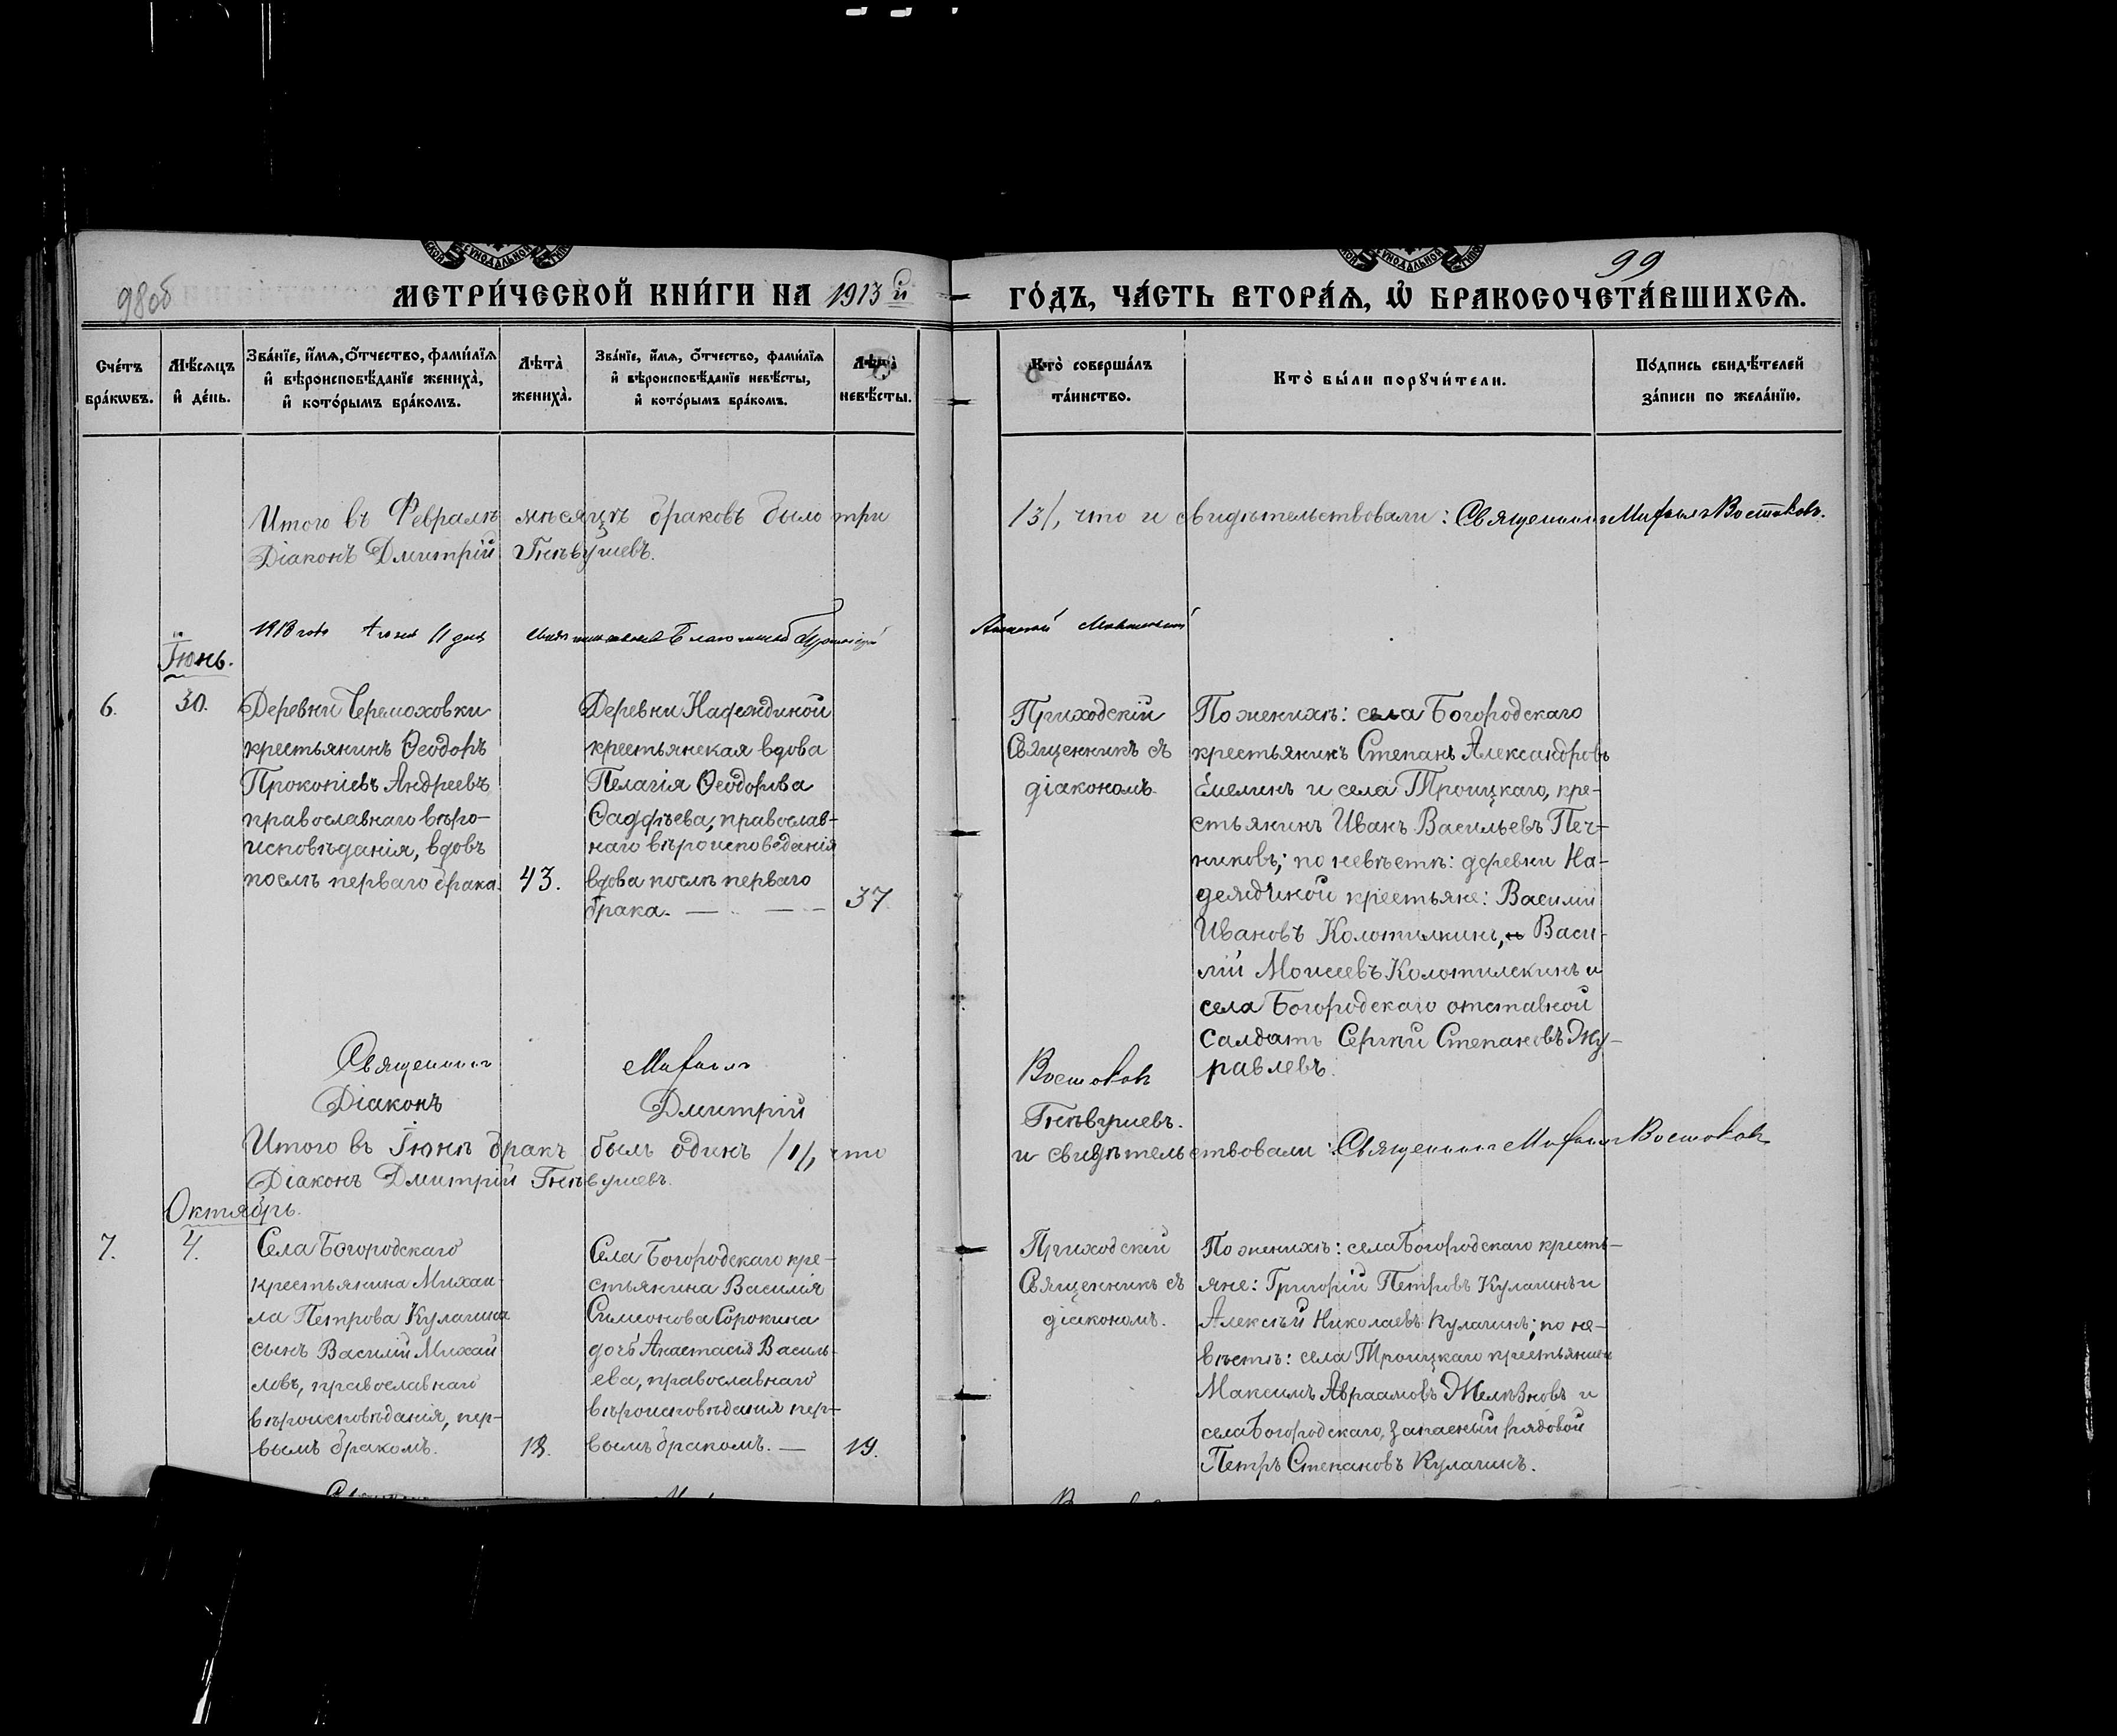 98об
МЕТРИ́ЧЕСКОЙ КНИ́ГИ НА 1913 й
Сче́тъ бра́кѡвъ.
Мѣ́сѧцъ и҆ де́нь.
Зва́нїе, и҆́мѧ, ѻ҆́тчество, фами́лїѧ
и҆ вѣроисповѣ́данїе жениха̀,
и҆ кото́рымъ бра́комъ.
Лѣта̀ жениха̀.
Зва́нїе, и҆́мѧ, ѻ҆́тчество, фами́лїѧ
и҆ вѣроисповѣ́данїе невѣ́сты,
и҆ кото́рымъ бра́комъ.
Лѣта̀ невѣ́сты.
99
ГО́ДЪ, ЧА́СТЬ ВТОРА́Ѧ, Ѡ҆ БРАКОСОЧЕТА́ВШИХСѦ.
Кто̀ соверша́лъ
та́инство.
Кто̀ бы́ли порꙋчи́тели.
По́дпись свидѣ́телей
за́писи по жела́нїю.
Итого въ Февралѣ мѣсяцѣ браковъ было три /3/, что и свидѣтельствовали: Священникъ Михаилъ Востоковъ.
Діаконъ Дмитрій Гнѣвушевъ.
1913 года Іюня 11 дня
Іюнь.
6.
30.
Деревни Черемоховки
крестьянинъ Ѳеодоръ
Прокопіевъ Андреевъ,
православнаго вѣро-
исповѣданія, вдовъ
послѣ перваго брака.
43.
Деревни Надеждиной
крестьянская вдова
Пелагія Ѳеодорова
Ѳаддѣева, православ-
наго вѣроисповѣданія
вдова послѣ перваго
брака.
37
Приходскій
Священникъ съ
діакономъ.
По женихѣ: села Богородскаго
крестьянинъ Степанъ Александровъ
Емелинъ и села Троицкаго, кре-
стьянинъ Иванъ Васильевъ Печ-
никовъ; по невѣстѣ: деревни На-
деждиной крестьяне: Василій
Ивановъ Колотилкинъ, Васи-
лій Моисеевъ Колотилкинъ и
села Богородскаго отставной
солдатъ Сергѣй Степановъ Жу-
равлевъ.
Священникъ Михаилъ Востоковъ
Діаконъ Дмитрій Гнѣвушевъ.
Итого въ Іюнѣ бракъ былъ одинъ /1/, что и свидѣтельствовали: Священникъ Михаилъ Востоковъ
Діаконъ Дмитрій Гнѣвушевъ.
Октябрь.
7.
4.
Села Богородскаго
крестьянина Михаи-
ла Петрова Кулагина
сынъ Василій Михай
ловъ, православнаго
вѣроисповѣданія, пер-
вымъ бракомъ.
18.
Села Богородскаго кре-
стьянина Василія
Симеонова Сорокина
дочь Анастасія Василь-
ева, православнаго
вѣроисповѣданія пер-
вымъ бракомъ. —
19.
Приходскій
Священникъ съ
діакономъ.
По женихѣ: села Богородскаго кресть-
яне: Григорій Петровъ Кулагинъ и
Алексѣй Николаевъ Кулагинъ; по не-
вѣстѣ: села Троицкаго крестьянинъ
Максимъ Авраамовъ Желѣзновъ и
села Богородскаго, запасный рядовой
Петръ Степановъ Кулагинъ.